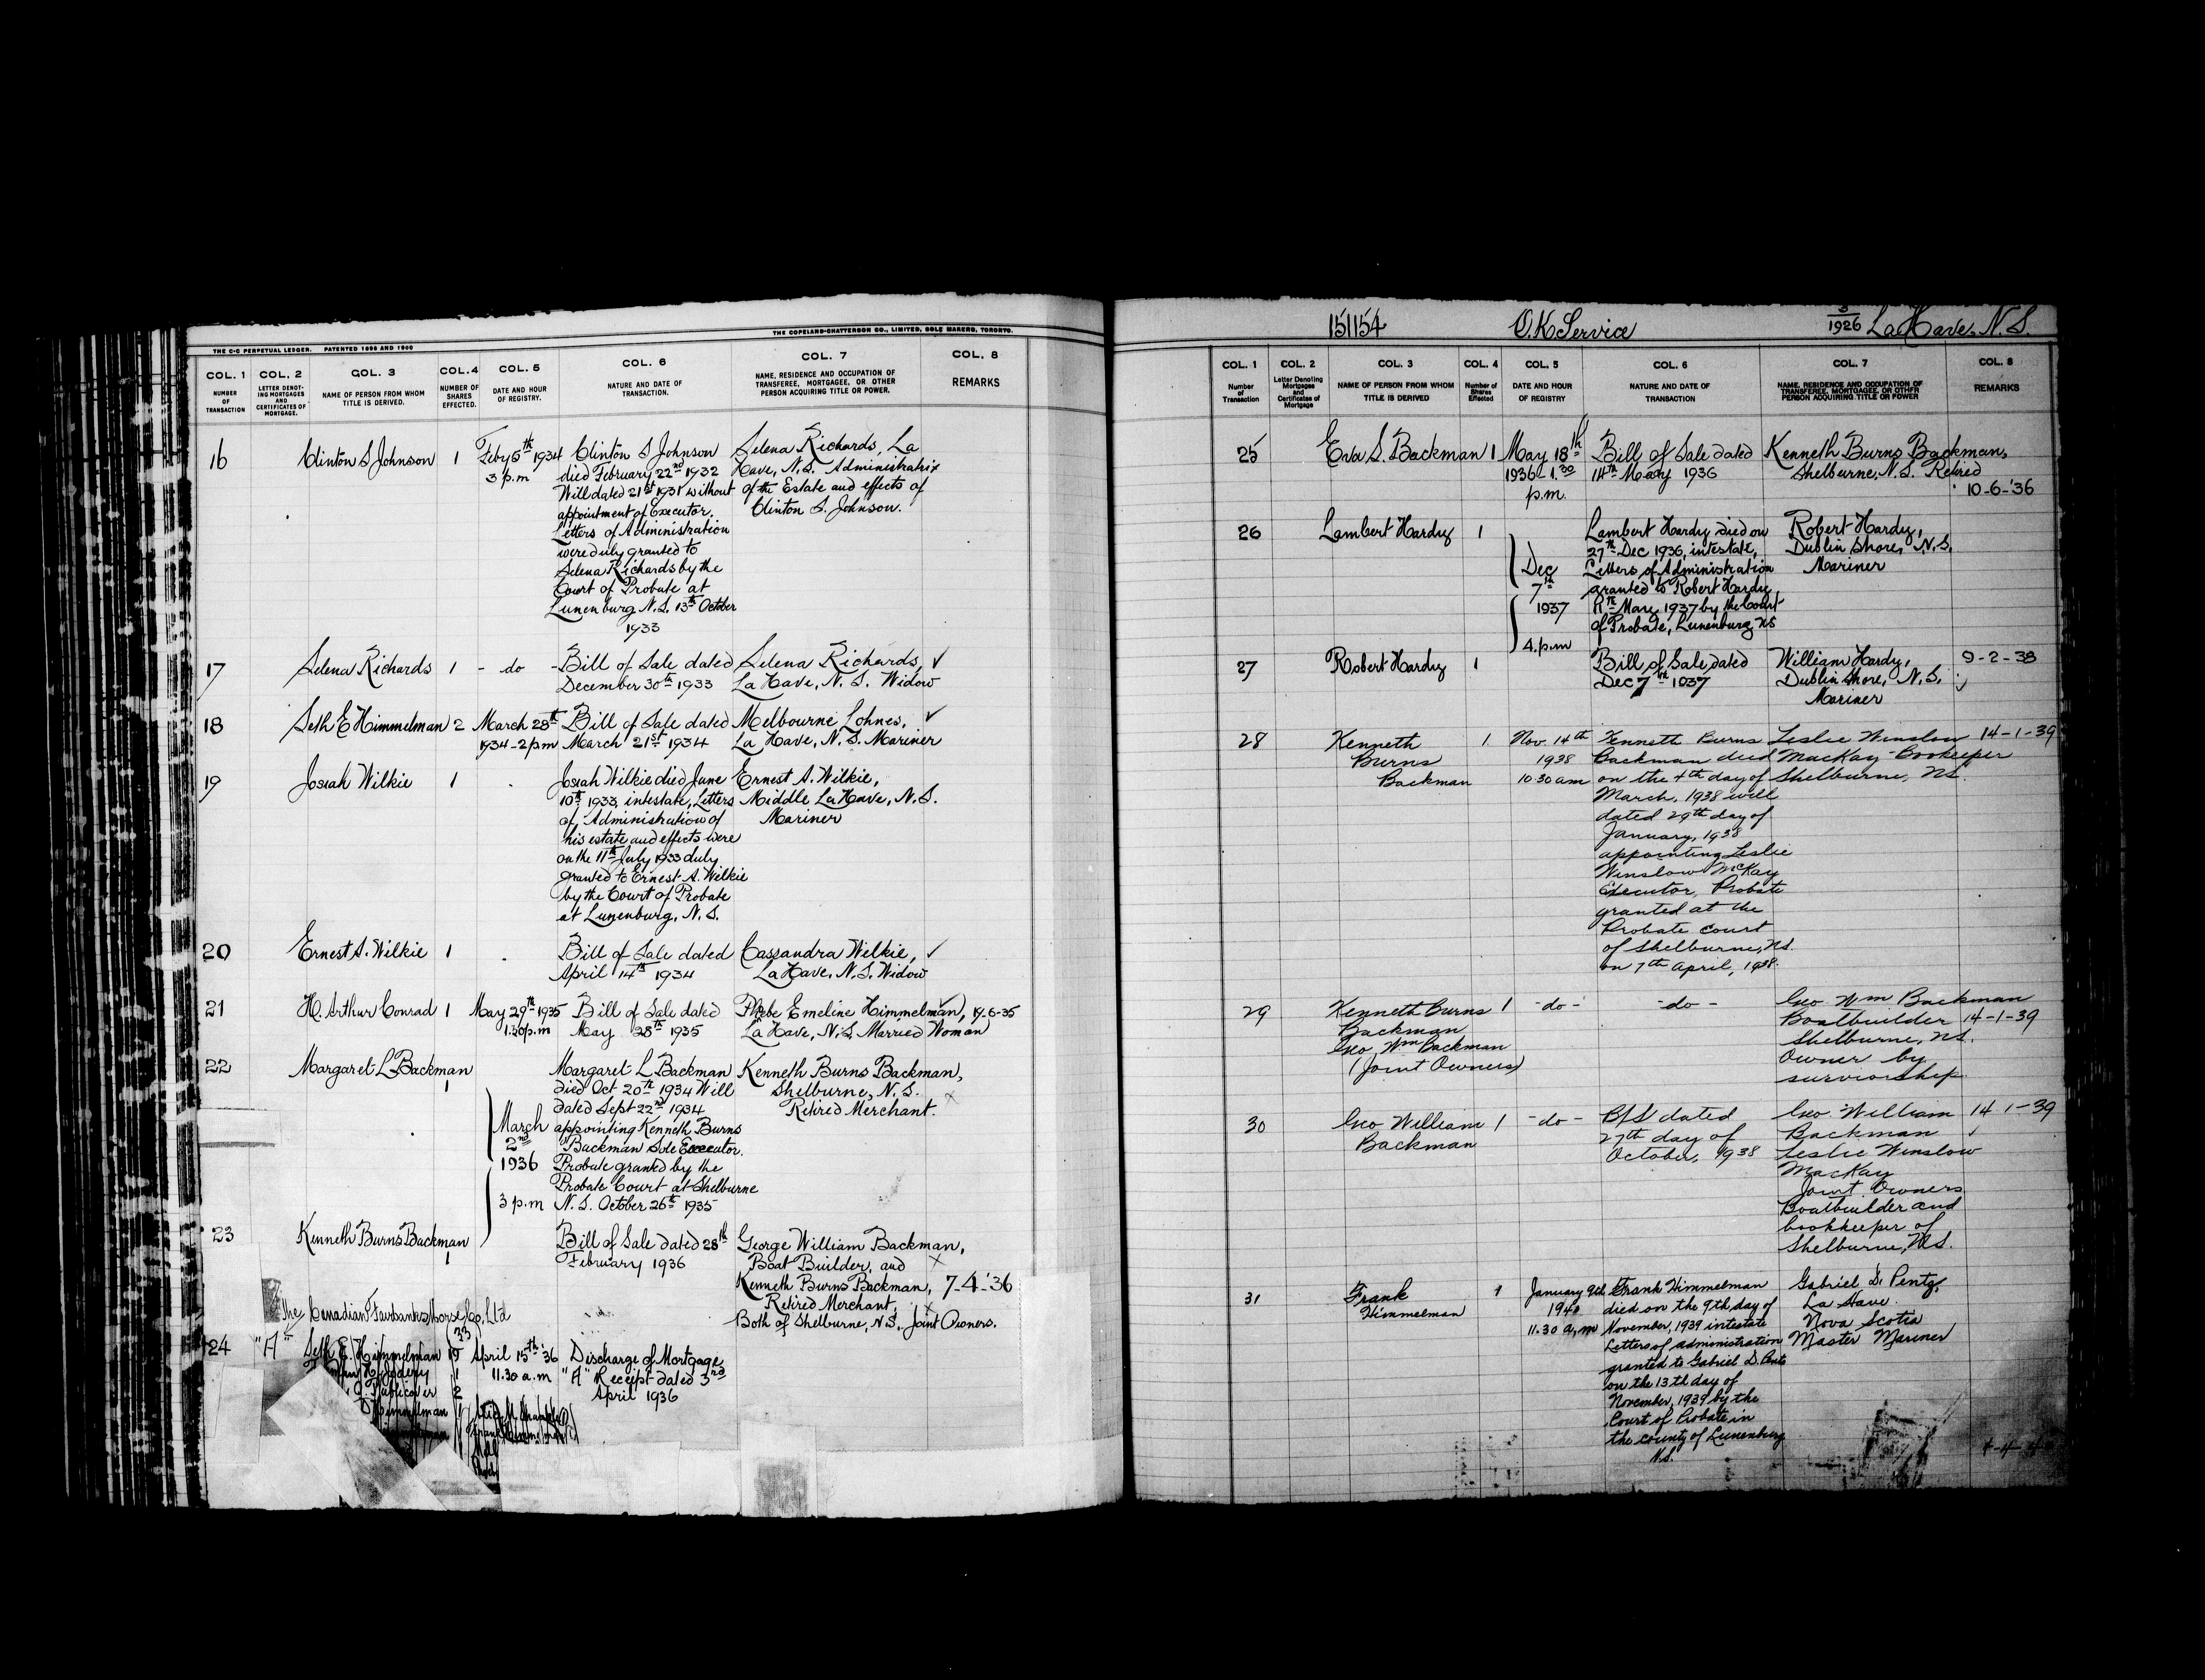 THE COPELAND-CHATTERSON CO., LIMITED, SOLE MAKERS, TORONTO.
THE C-C PERPETUAL LEDGER. PATENTED 1896 AND 1900
COL. 1 COL. 2 COL. 3 COL. 4 COL. 5 COL. 6 COL. 7 COL. 8
NUMBER OF TRANSACTION
LETTER DENOTING MORTGAGES AND CERTIFICATES OF MORTGAGE.
NAME OF PERSON FROM WHOM TITLE IS DERIVED.
NUMBER OF SHARES EFFECTED.
DATE AND HOUR OF REGISTRY.
NATURE AND DATE OF TRANSACTION.
NAME, RESIDENCE AND OCCUPATION OF TRANSFEREE, MORTGAGEE, OR OTHER PERSON ACQUIRING TITLE OR POWER.
REMARKS
16 Clinton S Johnson 1 Feby 5th 1934
3 p.m
Clinton S Johnson
died February 22nd 1932
Will dated 21st 1931 without
appointment of Executor.
Letters of Administration
were duly granted to
Selena Richards by the
Court of Probate at
Lunenburg N.S. 13th October
1933
Selena Richards, La
Have, N.S. Administratrix
of the Estate and effects of
Clinton S. Johnson.
17 Selena Richards 1 - do -
Bill of Sale dated
December 30th 1933
Selena Richards, ✓
La Have, N.S. Widow
18 Seth E Himmelman 2 March 28th
1934 - 2 pm
Bill of Sale dated
March 21st 1934
Melbourne Lohnes, ✓
La Have, N.S. Mariner
19 Josiah Wilkie 1
Josiah Wilkie died June
10th 1933, intestate, Letters
of Administration of
his estate and effects were
on the 11th July 1933 duly
granted to Ernest A. Wilkie
by the Court of Probate
at Lunenburg, N.S.
Ernest A. Wilkie,
Middle La Have, N.S.
Mariner
20 Ernest A. Wilkie 1
Bill of Sale dated
April 14th 1934
Cassandra Wilkie, ✓
La Have, N.S. Widow
21 H. Arthur Conrad 1 May 29th 1935
1.30 p.m
Bill of Sale dated
May 28th 1935
Phebe Emeline Himmelman, 19-6-35
La Have, N.S. Married Woman
22 Margaret L Backman
1
March
2nd
1936
3 p.m
Margaret L Backman
died Oct 20th 1934 Will
dated Sept 22nd 1934
appointing Kenneth Burns
Backman Sole Executor.
Probate granted by the
Probate Court at Shelburne
N.S. October 26th 1935
Kenneth Burns Backman,
Shelburne, N.S.
Retired Merchant.
23 Kenneth Burns Backman
1
Bill of Sale dated 28th
February 1936
George William Backman,
Boat Builder, and
Kenneth Burns Backman, 7-4-'36
Retired Merchant,
Both of Shelburne, N.S., Joint Owners.
The Canadian Fairbanks Morse Co. Ltd
24 "A" Seth E. Himmelman
April 15th '36
11.30 a.m
Discharge of Mortgage
"A" Receipt dated 3rd
April 1936
151154 O.K. Service 3/1926 La Have, N.S.
COL. 1 COL. 2 COL. 3 COL. 4 COL. 5 COL. 6 COL. 7 COL. 8
Number of Transaction
Letter Denoting Mortgages and Certificates of Mortgage
NAME OF PERSON FROM WHOM TITLE IS DERIVED
Number of Shares Effected
DATE AND HOUR OF REGISTRY
NATURE AND DATE OF TRANSACTION
NAME, RESIDENCE AND OCCUPATION OF TRANSFEREE, MORTGAGEE, OR OTHER PERSON ACQUIRING TITLE OR POWER
REMARKS
25 Eva S. Backman 1 May 18th
1936 - 1.30
p.m.
Bill of Sale dated
14th May 1936
Kenneth Burns Backman,
Shelburne, N.S. Retired
10-6-'36
26 Lambert Hardy 1
Dec
7th
1937
4 p.m
Lambert Hardy died on
27th Dec 1936, intestate,
Letters of Administration
granted to Robert Hardy
May 1937 by the Court
of Probate, Lunenburg NS
Robert Hardy,
Dublin Shore, N.S.
Mariner
27 Robert Hardy 1
Bill of Sale dated
Dec 7th 1937
William Hardy, 9-2-38
Dublin Shore, N.S.
Mariner
28 Kenneth
Burns
Backman
1 Nov. 14th
1938
10 30 am
Kenneth Burns
Backman died
on the 4th day of
March, 1938 will
dated 29th day of
January, 1938
appointing Leslie
Winslow McKay
Executor, Probate
granted at the
Probate court
of Shelburne, N.S.
on 7th April, 1938.
Leslie Winslow 14-1-39
MacKay - Bookeeper
Shelburne, N.S.
29 Kenneth Burns 1 - do - - do -
Backman
Geo Wm Backman
(Joint Owners)
Geo Wm Backman
Boatbuilder 14-1-39
Shelburne, N.S.
Owner by
surviorship
30 Geo William 1 - do -
Backman
B/S dated
27th day of
October, 1938
Geo William 14 1-39
Backman
Leslie Winslow
MacKay
Joint Owners
Boatbuilder and
bookkeeper of
Shelburne, N.S.
31 Frank
Himmelman
1 January 9th
1940
11.30 a.m
Frank Himmelman
died on the 9th day of
November, 1939 intestate
Letters of administration
granted to Gabriel D. Pentz
on the 13th day of
November, 1939 by the
Court of Probate in
the county of Lunenburg
N.S.
Gabriel D. Pentz,
La Have
Nova Scotia
Master Mariner